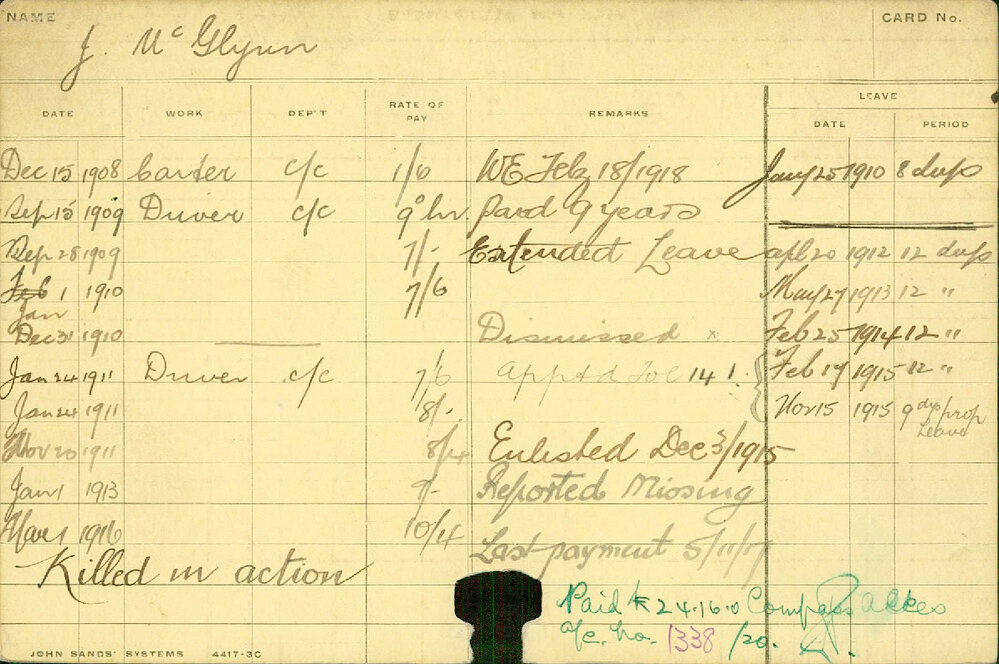 NAME
CARD No.
J. McGlynn
DATE WORK DEP'T RATE OF PAY REMARKS LEAVE
DATE PERIOD
Dec 15 1908 Carter c/c 1/6 WE Feb 18/1918 Jany 25 1910 8 dys
Sep 15 1909 Driver c/c 9° hr paid 9 years
Sep 28 1909 7/- Extended Leave apl 20 1912 12 dys
Feb 1 1910 7/6 May 27 1913 12 "
Jan
Dec 31 1910 Dismissed x Feb 25 1914 12 "
Jan 24 1911 Driver c/c 7/6 Appt'd 14 1. Feb 17 1915 12 "
Jan 24 1911 8/- Nov 15 1915 9 dys prop
Leave
Nov 20 1911 8/4 Enlisted Dec 3/1915
Jan 1 1913 9- Reported Missing
Mar 1 1916 10/4
Last payment 5/11/17
Killed in action
Paid £24.16.0
a/c. No. 1338 /20.
JOHN SANDS' SYSTEMS 4417-3C